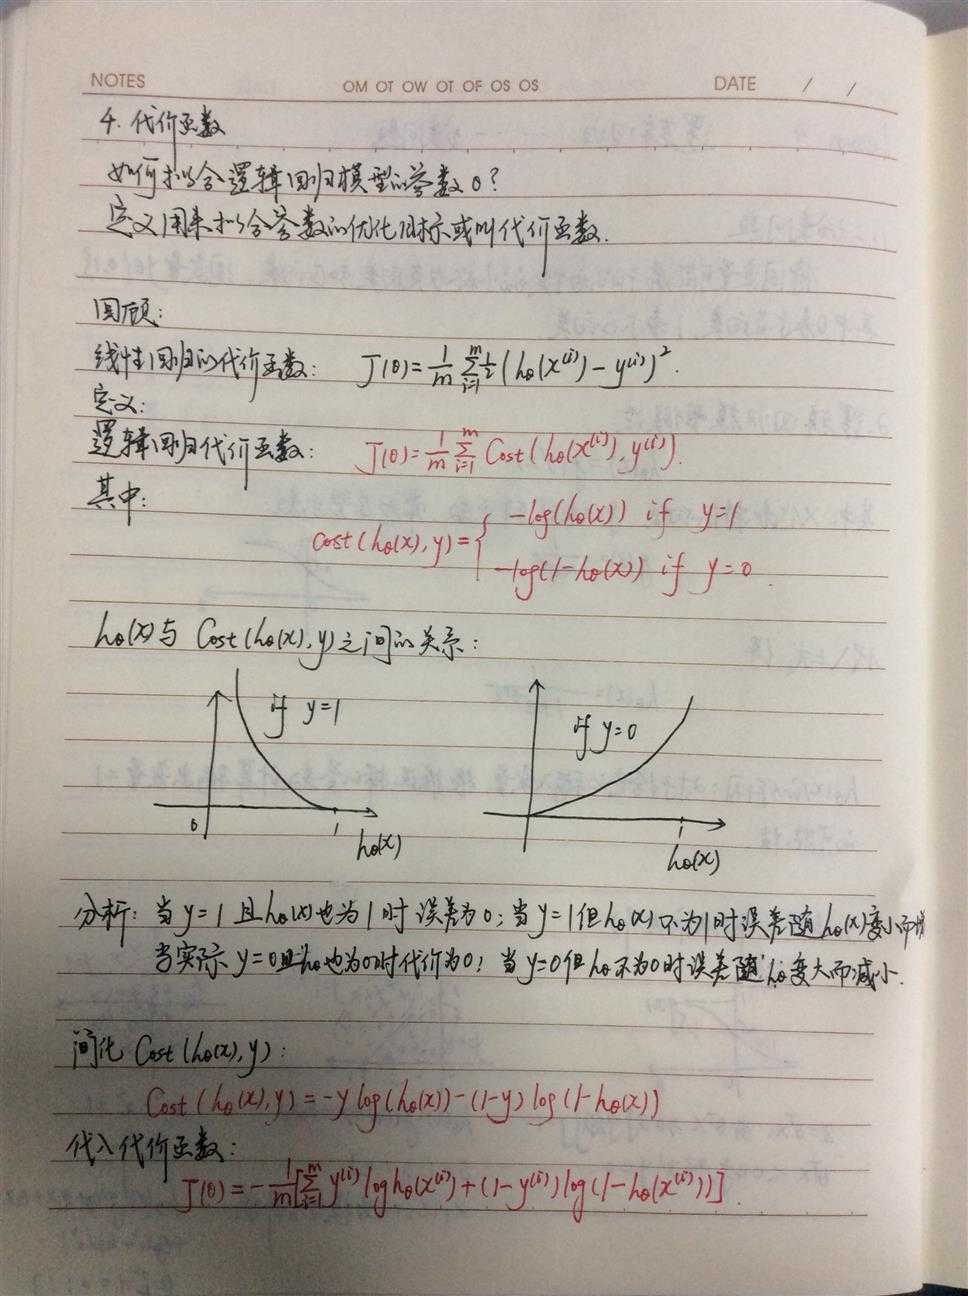 NOTES OM OT OW OT OF OS OS DATE / /
4. 代价函数
如何拟合逻辑回归模型的参数θ?
定义用来拟合参数的优化目标或叫代价函数.
回顾:
线性回归的代价函数: J(θ)=1/m Σ_{i=1}^{m} 1/2 (hθ(x^(i))-y^(i))².
定义:
逻辑回归代价函数: J(θ)=1/m Σ_{i=1}^{m} Cost(hθ(x^(i)),y^(i)).
其中:
-log(hθ(x)) if y=1
cost(hθ(x),y)={
-log(1-hθ(x)) if y=0.
hθ(x)与 Cost(hθ(x),y)之间的关系:
if y=1
if y=0
0 1 hθ(x)
1 hθ(x)
分析: 当y=1且hθ(x)也为1时误差为0;当y=1但hθ(x)不为1时误差随hθ(x)变小而增
当实际y=0且hθ也为0时代价为0;当y=0但hθ不为0时误差随hθ变大而减小.
简化 Cost(hθ(x),y):
Cost(hθ(x),y)=-y log(hθ(x))-(1-y)log(1-hθ(x))
代入代价函数:
J(θ)=-1/m[Σ_{i=1}^{m} y^(i) log hθ(x^(i))+(1-y^(i))log(1-hθ(x^(i)))].